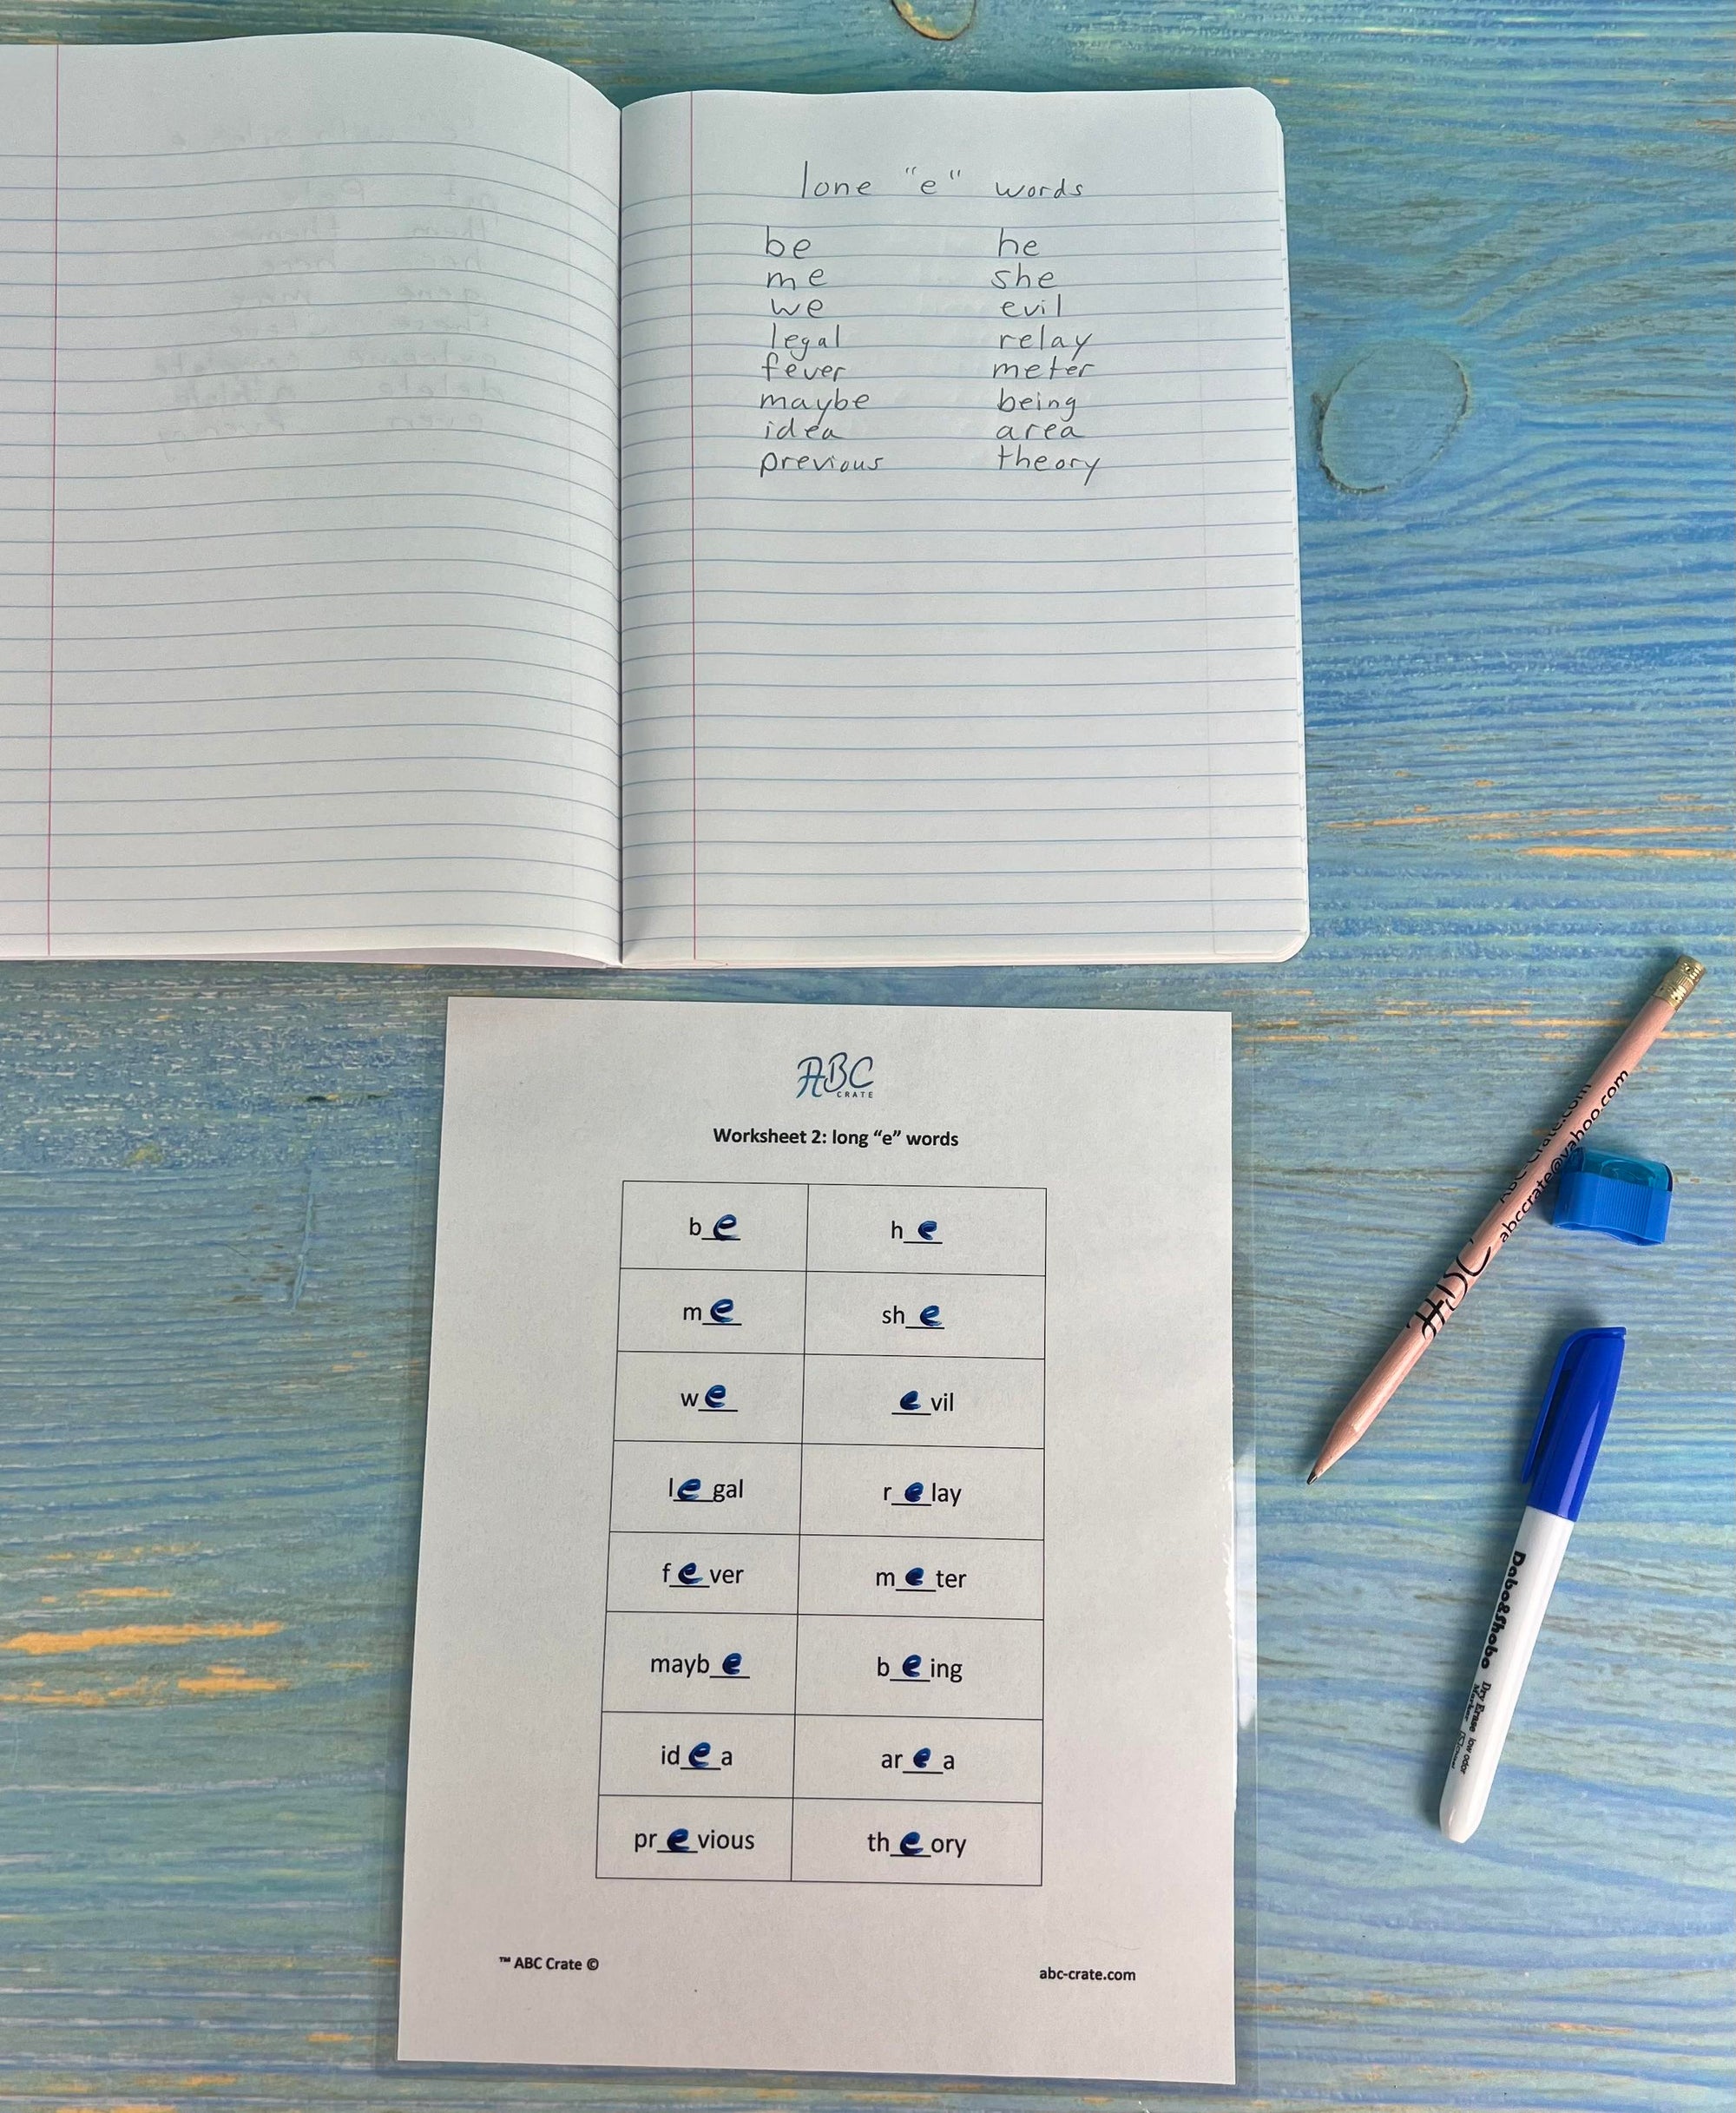 lone "e" words
be he
me she
we evil
legal relay
fever meter
maybe being
idea area
previous theory
ABC
CRATE
Worksheet 2: long “e” words
b_e_ h_e_
m_e_ sh_e_
w_e_ _e_vil
l_e_gal r_e_lay
f_e_ver m_e_ter
mayb_e_ b_e_ing
id_e_a ar_e_a
pr_e_vious th_e_ory
™ ABC Crate © abc-crate.com
ABC Crate.com
abccrate@yahoo.com
Dabo&Shobo Dry Erase low odor
Marker